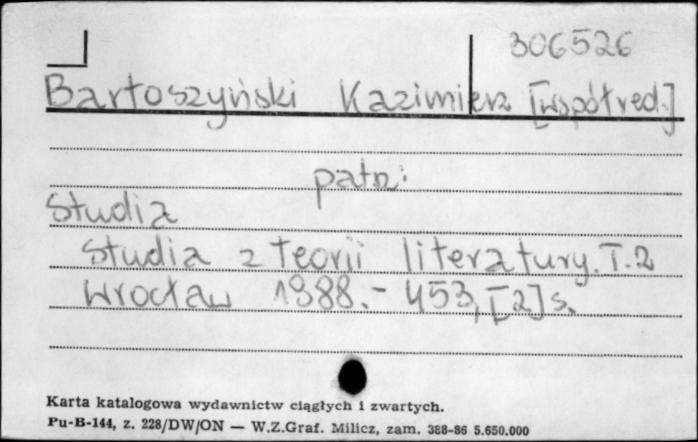 306526
Bartoszyński Kazimierz [współred.]
patrz:
Studia
Studia z teorii literatury. T. 2
Wrocław 1988.- 453, [2] s.
Karta katalogowa wydawnictw ciągłych i zwartych.
Pu-B-144, z. 228/DW/ON — W.Z.Graf. Milicz, zam. 388-86 5.650.000